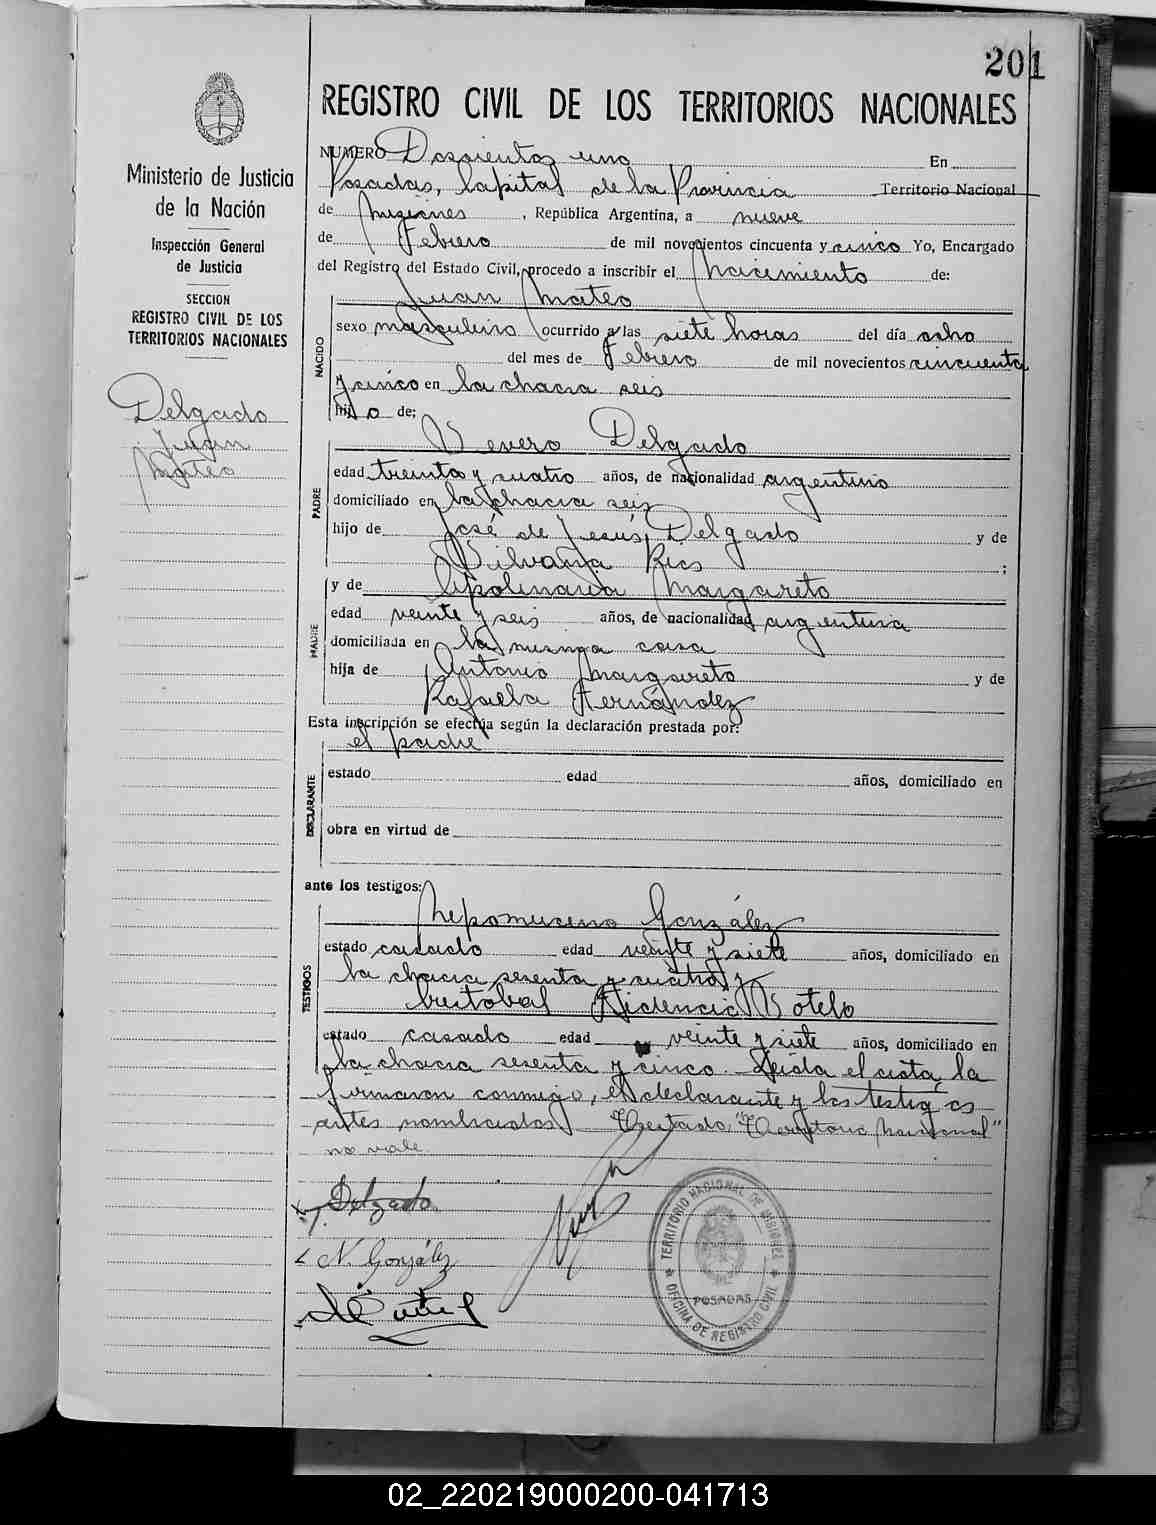 201
REGISTRO CIVIL DE LOS TERRITORIOS NACIONALES
Ministerio de Justicia
de la Nación
Inspección General
de Justicia
SECCION
REGISTRO CIVIL DE LOS
TERRITORIOS NACIONALES
Delgado
Juan
Mateo
NUMERO Doscientos uno En
Posadas, Capital de la Provincia Territorio Nacional
de Misiones, República Argentina, a nueve
de Febrero de mil novecientos cincuenta y cinco Yo, Encargado
del Registro del Estado Civil, procedo a inscribir el Nacimiento de:
Juan Mateo
NACIDO
sexo masculino ocurrido a las siete horas del día ocho
del mes de Febrero de mil novecientos cincuenta
y cinco en la chacra seis
hijo de:
Venero Delgado
PADRE
edad treinta y cuatro años, de nacionalidad argentino
domiciliado en la chacra seis
hijo de José de Jesús Delgado y de
Silvana Rios ;
y de Apolinaria Margareto
MADRE
edad veinte y seis años, de nacionalidad argentina
domiciliada en la misma casa
hija de Antonio Margareto y de
Rafaela Fernández
Esta inscripción se efectúa según la declaración prestada por:
el padre
DECLARANTE
estado edad años, domiciliado en
obra en virtud de
ante los testigos:
Nepomuceno González
TESTIGOS
estado casado edad veinte y siete años, domiciliado en
la chacra sesenta y cuatro y
Cristobal Fidencio Sotelo
estado casado edad veinte y siete años, domiciliado en
la chacra sesenta y cinco. Leída el acta, la
firmaron conmigo, el declarante y los testigos
antes nombrados. Testado "Territorio Nacional"
no vale.
Delgado
N. González
TERRITORIO NACIONAL DE MISIONES
POSADAS
OFICINA DE REGISTRO CIVIL
02_220219000200-041713